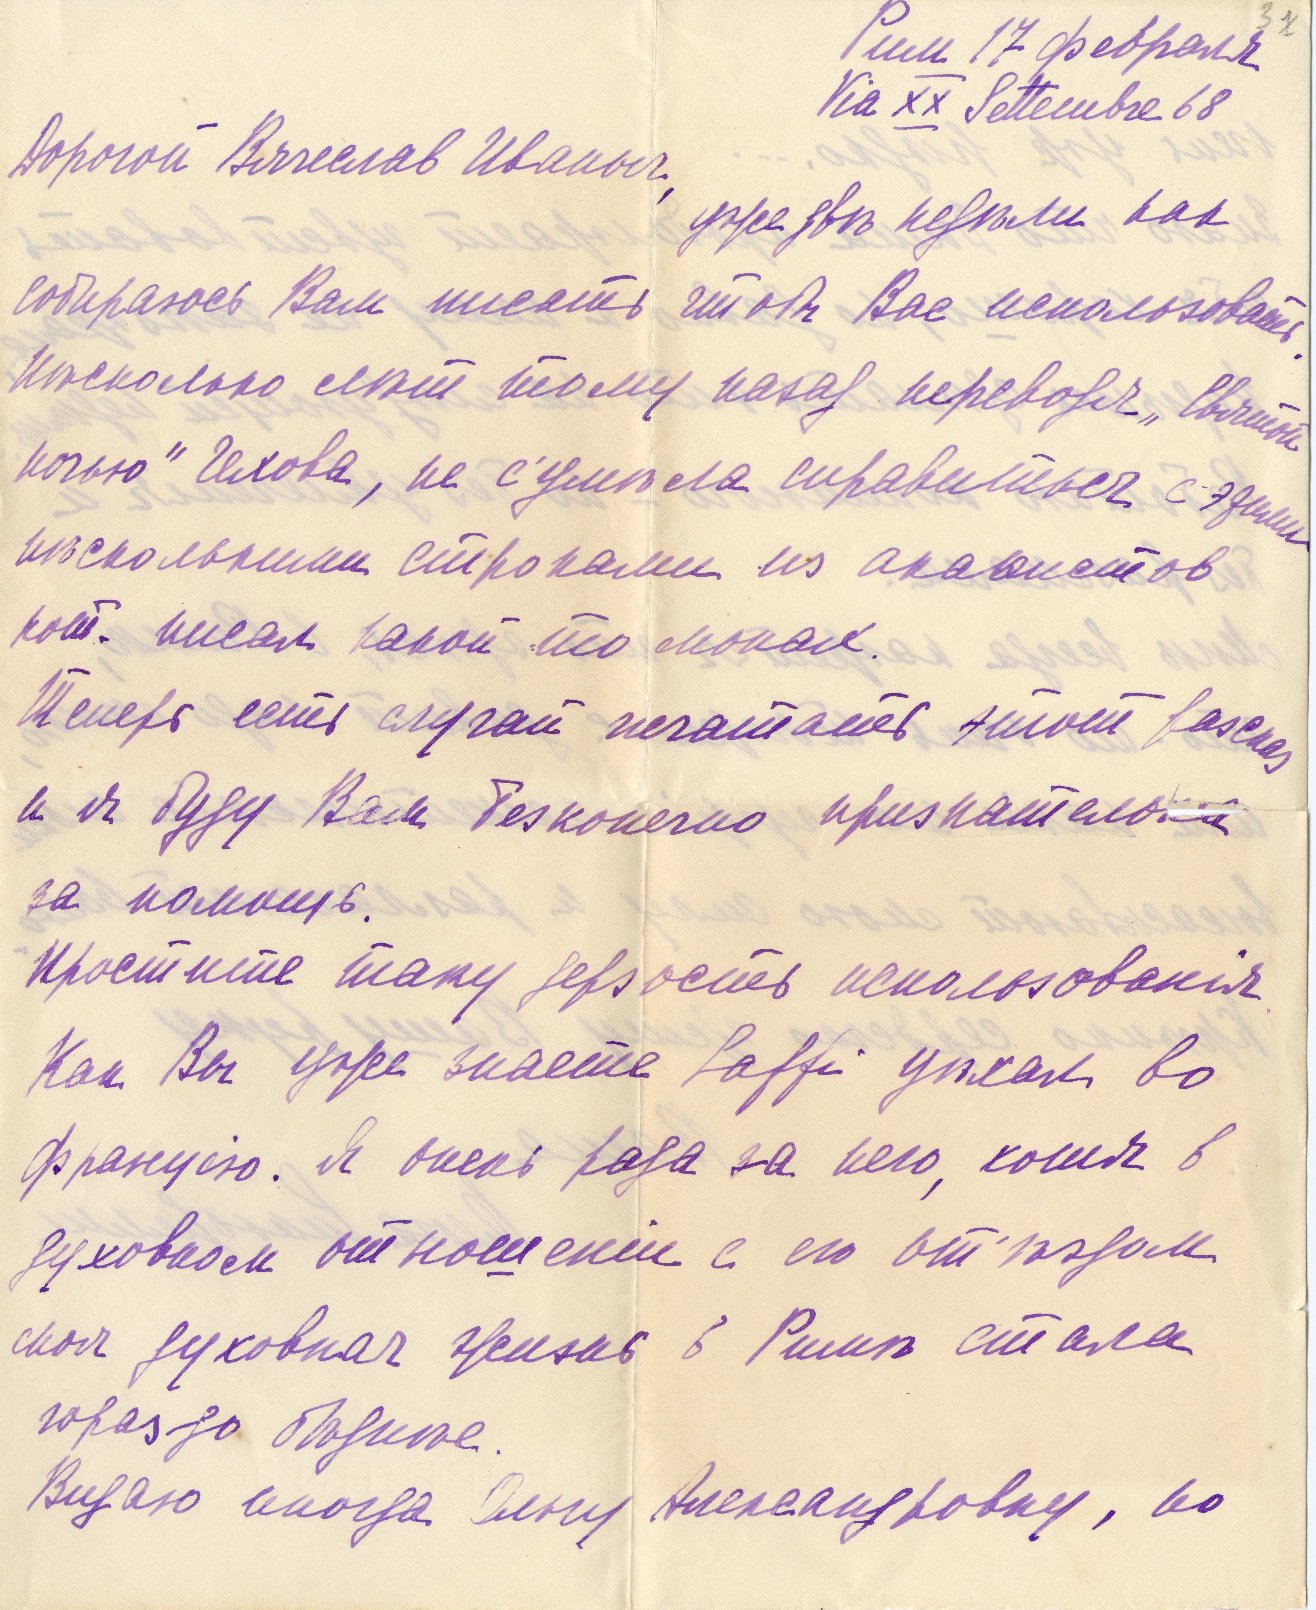 31
Рим 17 февраля
Via XX Settembre 68
Дорогой Вячеслав Иваныч,
уже двѣ недѣли как
собираюсь Вам писать чтобы Вас использовать.
Нѣсколько лѣт тому назад переводя „Святой
ночью" Чехова, не с'умѣла справиться с этими
нѣсколькими строками из акафистов
кот. писал какой то монах.
Теперь есть случай печатать этот рассказ
и я буду Вам безконечно признательна
за помощь.
Простите таку дерзость использованія.
Как Вы уже знаете Gaffi уѣхал во
Францію. Я очень рада за него, хотя в
духовном отношеніи с его от'ѣздом
моя духовная жизнь в Римѣ стала
гораздо бѣднѣе.
Видаю иногда Ольгу Александровну, но